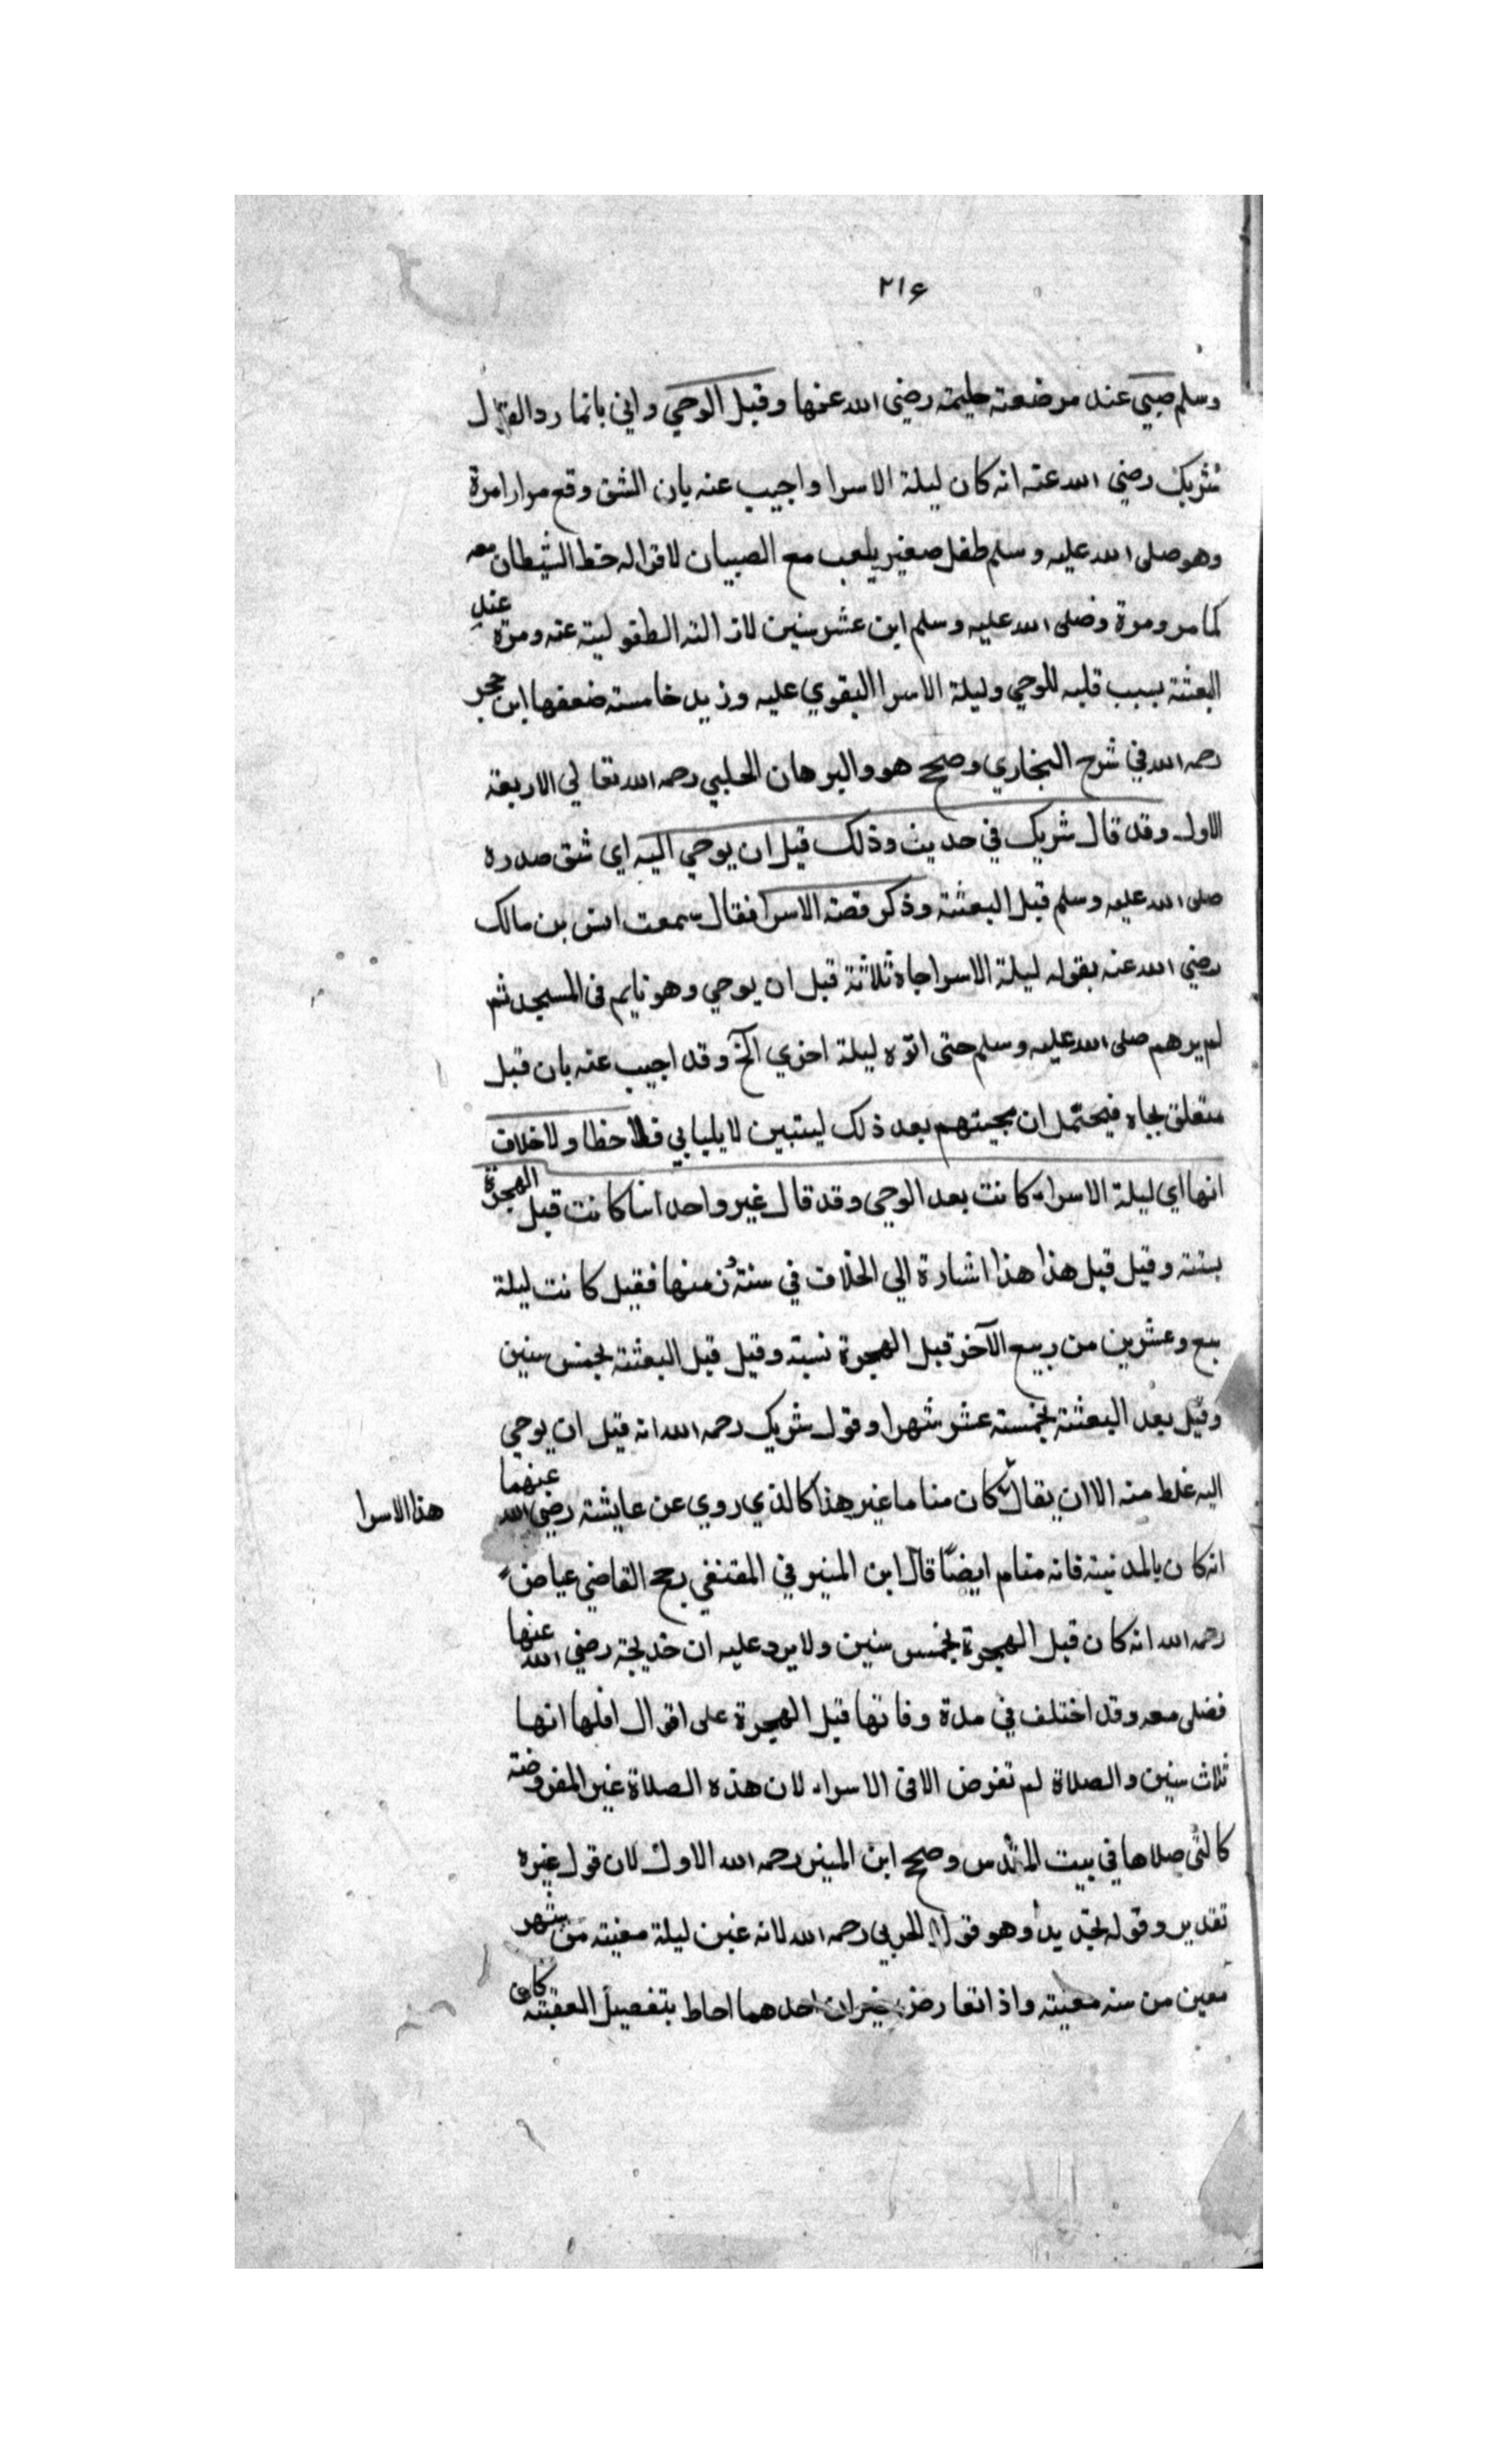 ٢١۶
وسلم صبي عند مرضعته حليمة رضي الله عنها وقبل الوحي واني بانما رد القول
شريك رضي الله عنه انه كان ليلة الاسرا واجيب عنه بان الشق وقع مرارا مرة
وهو صلى الله عليه وسلم طفل صغير يلعب مع الصبيان لاقراله حظ الشيطان معه
كما مر ومرة وصلى الله عليه وسلم ابن عشر سنين لازالته الطفوليته عنه ومرة عند
البعثة بسبب قلبه للوحي وليلة الاسرا البقوي عليه وزيد خامسته ضعفها ابن حجر
رحمه الله في شرح البخاري وصحح هو والبرهان الحلبي رحمه الله تعالي الاربعة
الاول وقد قال شريك في حديث وذلك قبل ان يوحي اليه اي شق صدره
صلى الله عليه وسلم قبل البعثة وذكر قصة الاسرا فقال سمعت انس بن مالك
رضي الله عنه بقوله ليلة الاسرا جاه ثلاثة قبل ان يوحي وهو نايم في المسجد ثم
لم يرهم صلى الله عليه وسلم حتى اتوه ليلة اخري الخ وقد اجيب عنه بان قبل
متعلق بجاه فيحتمل ان مجيتهم بعد ذلك ليتبين لا يليايي فلا خطا ولا خلاف
انها اي ليلة الاسراء كانت بعد الوحي وقد قال غير واحد انها كانت قبل الهجرة
بسنة وقيل قبل هذا هذا اشارة الي الخلاف في سنة منها فقيل كانت ليلة
سبع وعشرين من ربيع الآخر قبل الهجرة نسبة وقيل قبل البعثة بخمس سنين
وقيل بعد البعثة بخمسته عشر شهرا وقول شريك رحمه الله انه قبل ان يوحي
اليه غلط منه الا ان يقال كان مناما غير هذا كالذي روي عن عايشة رضي الله عنهما
هذا الاسرا
انه كان بالمدنيته فانه منام ايضًا قال ابن المنير في المقتفي رجح القاضي عياض
رحمه الله انه كان قبل الهجرة بخمس سنين ولا يرد عليه ان خديجة رضي الله عنها
فضلى معه وقد اختلف في مدة وفاتها قبل الهجرة على اقوال اقلها انها
ثلاث سنين والصلاة لم تفرض الا في الاسراء لان هذه الصلاة غير المفروضة
كالتى صلاها في بيت المقدس وصحح ابن المنير رحمه الله الاول لان قول غيره
تقدير وقوله تجديد وهو قول الحربي رحمه الله لانه عين ليلة معينه من شهر
معين من سنه معينه واذا تعارض خبران احدهما احاط بتفصيل العقبته كان